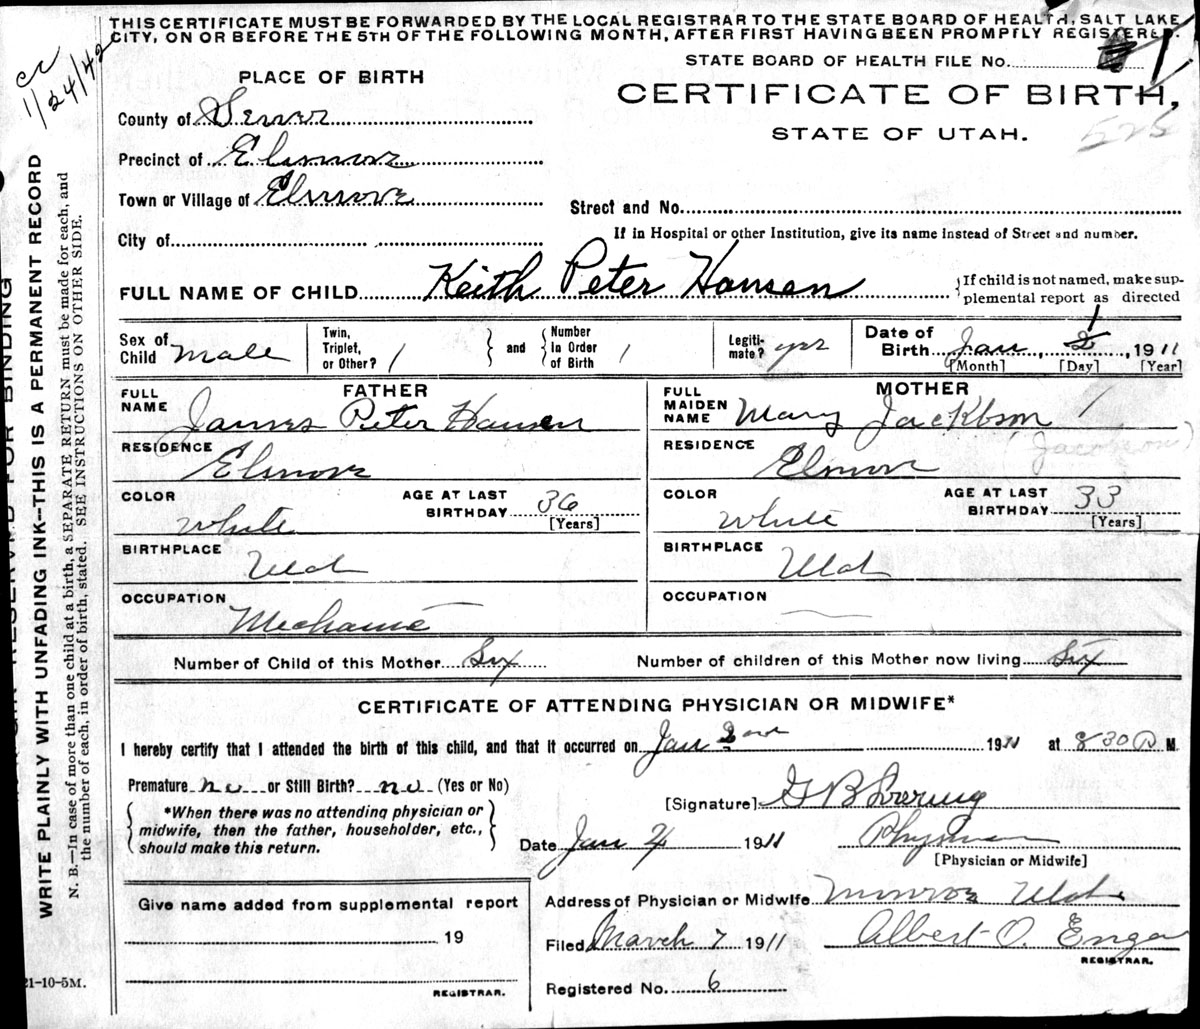 THIS CERTIFICATE MUST BE FORWARDED BY THE LOCAL REGISTRAR TO THE STATE BOARD OF HEALTH, SALT LAKE
CITY, ON OR BEFORE THE 5TH OF THE FOLLOWING MONTH, AFTER FIRST HAVING BEEN PROMPTLY REGISTERED.
1/24/42
STATE BOARD OF HEALTH FILE No. 1
PLACE OF BIRTH
CERTIFICATE OF BIRTH,
525
STATE OF UTAH.
County of Sevier
Precinct of Elsinore
Town or Village of Elsinore
Street and No.
City of
If in Hospital or other Institution, give its name instead of Street and number.
FULL NAME OF CHILD Keith Peter Hansen
If child is not named, make sup-
plemental report as directed
Sex of Child Male
Twin, Triplet, or Other? 1
and
Number In Order of Birth 1
Legiti- mate? yes
Date of Birth Jan, 2 1, 1911
[Month] [Day] [Year]
FATHER
FULL NAME James Peter Hansen
RESIDENCE Elsinore
COLOR White
AGE AT LAST BIRTHDAY 36 [Years]
BIRTHPLACE Utah
OCCUPATION Mechanic
MOTHER
FULL MAIDEN NAME Mary Jackbson
(Jacobson)
RESIDENCE Elsinore
COLOR White
AGE AT LAST BIRTHDAY 33 [Years]
BIRTHPLACE Utah
OCCUPATION
Number of Child of this Mother Six
Number of children of this Mother now living Six
CERTIFICATE OF ATTENDING PHYSICIAN OR MIDWIFE*
I hereby certify that I attended the birth of this child, and that it occurred on Jan 1911 at 8 30 P M.
Premature no or Still Birth? no (Yes or No)
*When there was no attending physician or
midwife, then the father, householder, etc.,
should make this return.
[Signature] G B
Date Jan 4 1911
[Physician or Midwife]
Give name added from supplemental report
19
REGISTRAR.
Address of Physician or Midwife Monroe Utah
Filed March 7 1911 Albert O. Enga
REGISTRAR.
Registered No. 6
21-10-5M.
RESERVED FOR BINDING
WRITE PLAINLY WITH UNFADING INK--THIS IS A PERMANENT RECORD
N. B.—In case of more than one child at a birth, a SEPARATE RETURN must be made for each, and
the number of each, in order of birth, stated. SEE INSTRUCTIONS ON OTHER SIDE.